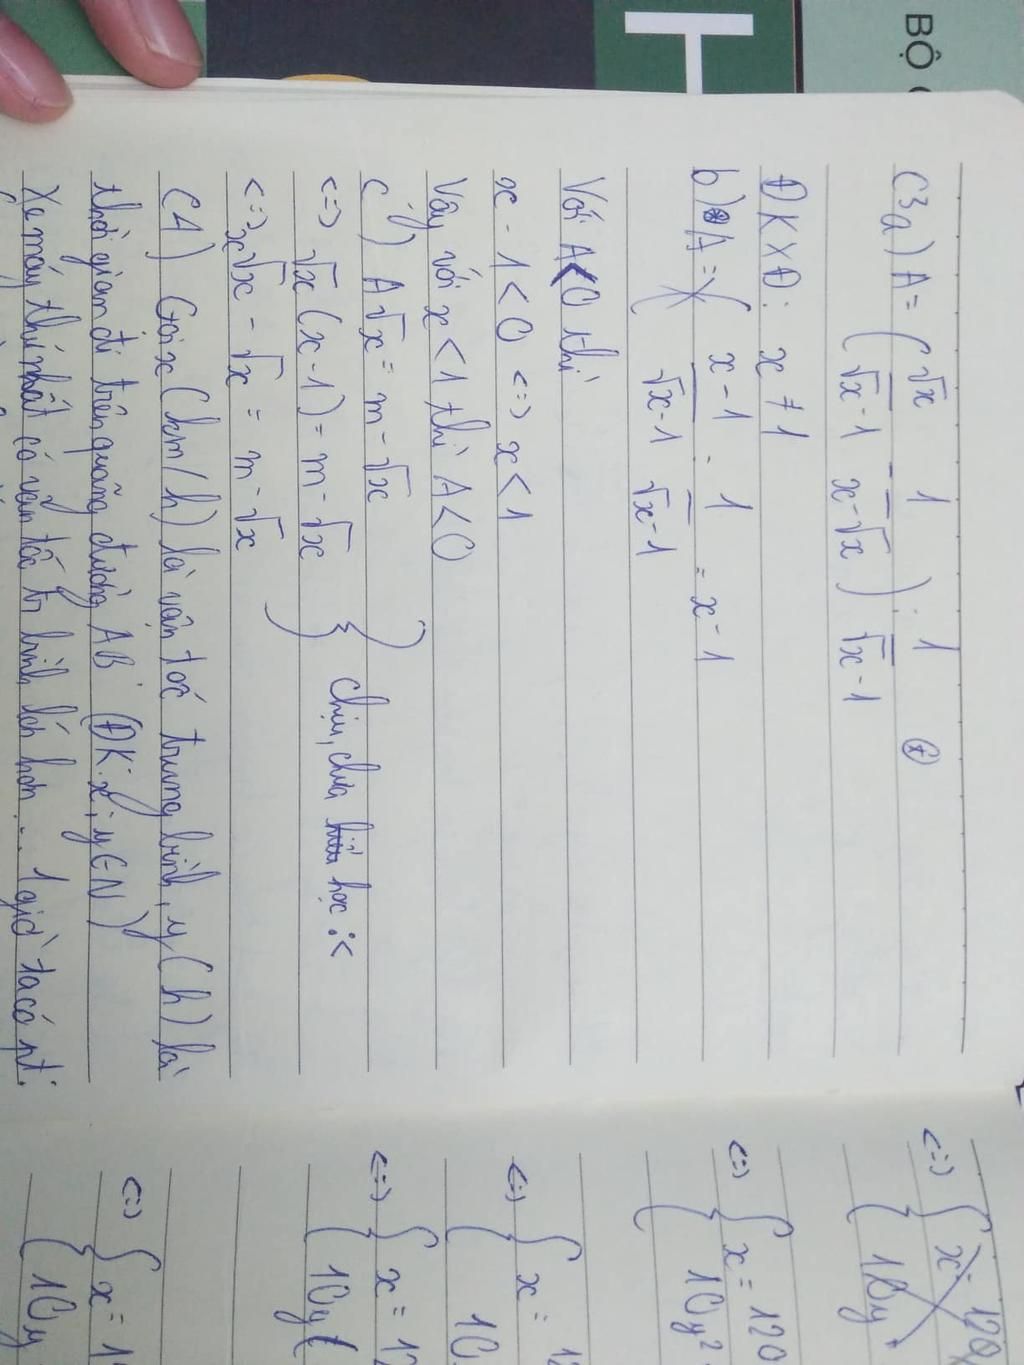 BỘ
H
C3a) A = ( √x/(√x-1) - 1/(x-√x) ) : 1/(√x-1) (*)
ĐKXĐ: x ≠ 1
b) (*) A = (x-1)/(√x-1) . 1/(√x-1) = x-1
Với A<0 thì
x - 1 < 0 <=> x < 1
Vậy với x < 1 thì A < 0
c) A√x = m - √x
<=> √x (x-1) = m - √x } chịu, chưa học :<
<=> x√x - √x = m - √x
C4) Gọi x (km/h) là vận tốc trung bình, y (h) là
thời gian đi trên quãng đường AB (ĐK: x; y ∈ N)
Xe máy thứ nhất có vận tốc tr bình lớn hơn ... 1 giờ ta có pt:
<=> { x = 120
10y
<=> { x = 120
10y²
<=> { x = 12
10
<=> { x = 12
10y(
<=> { x = 1
10y